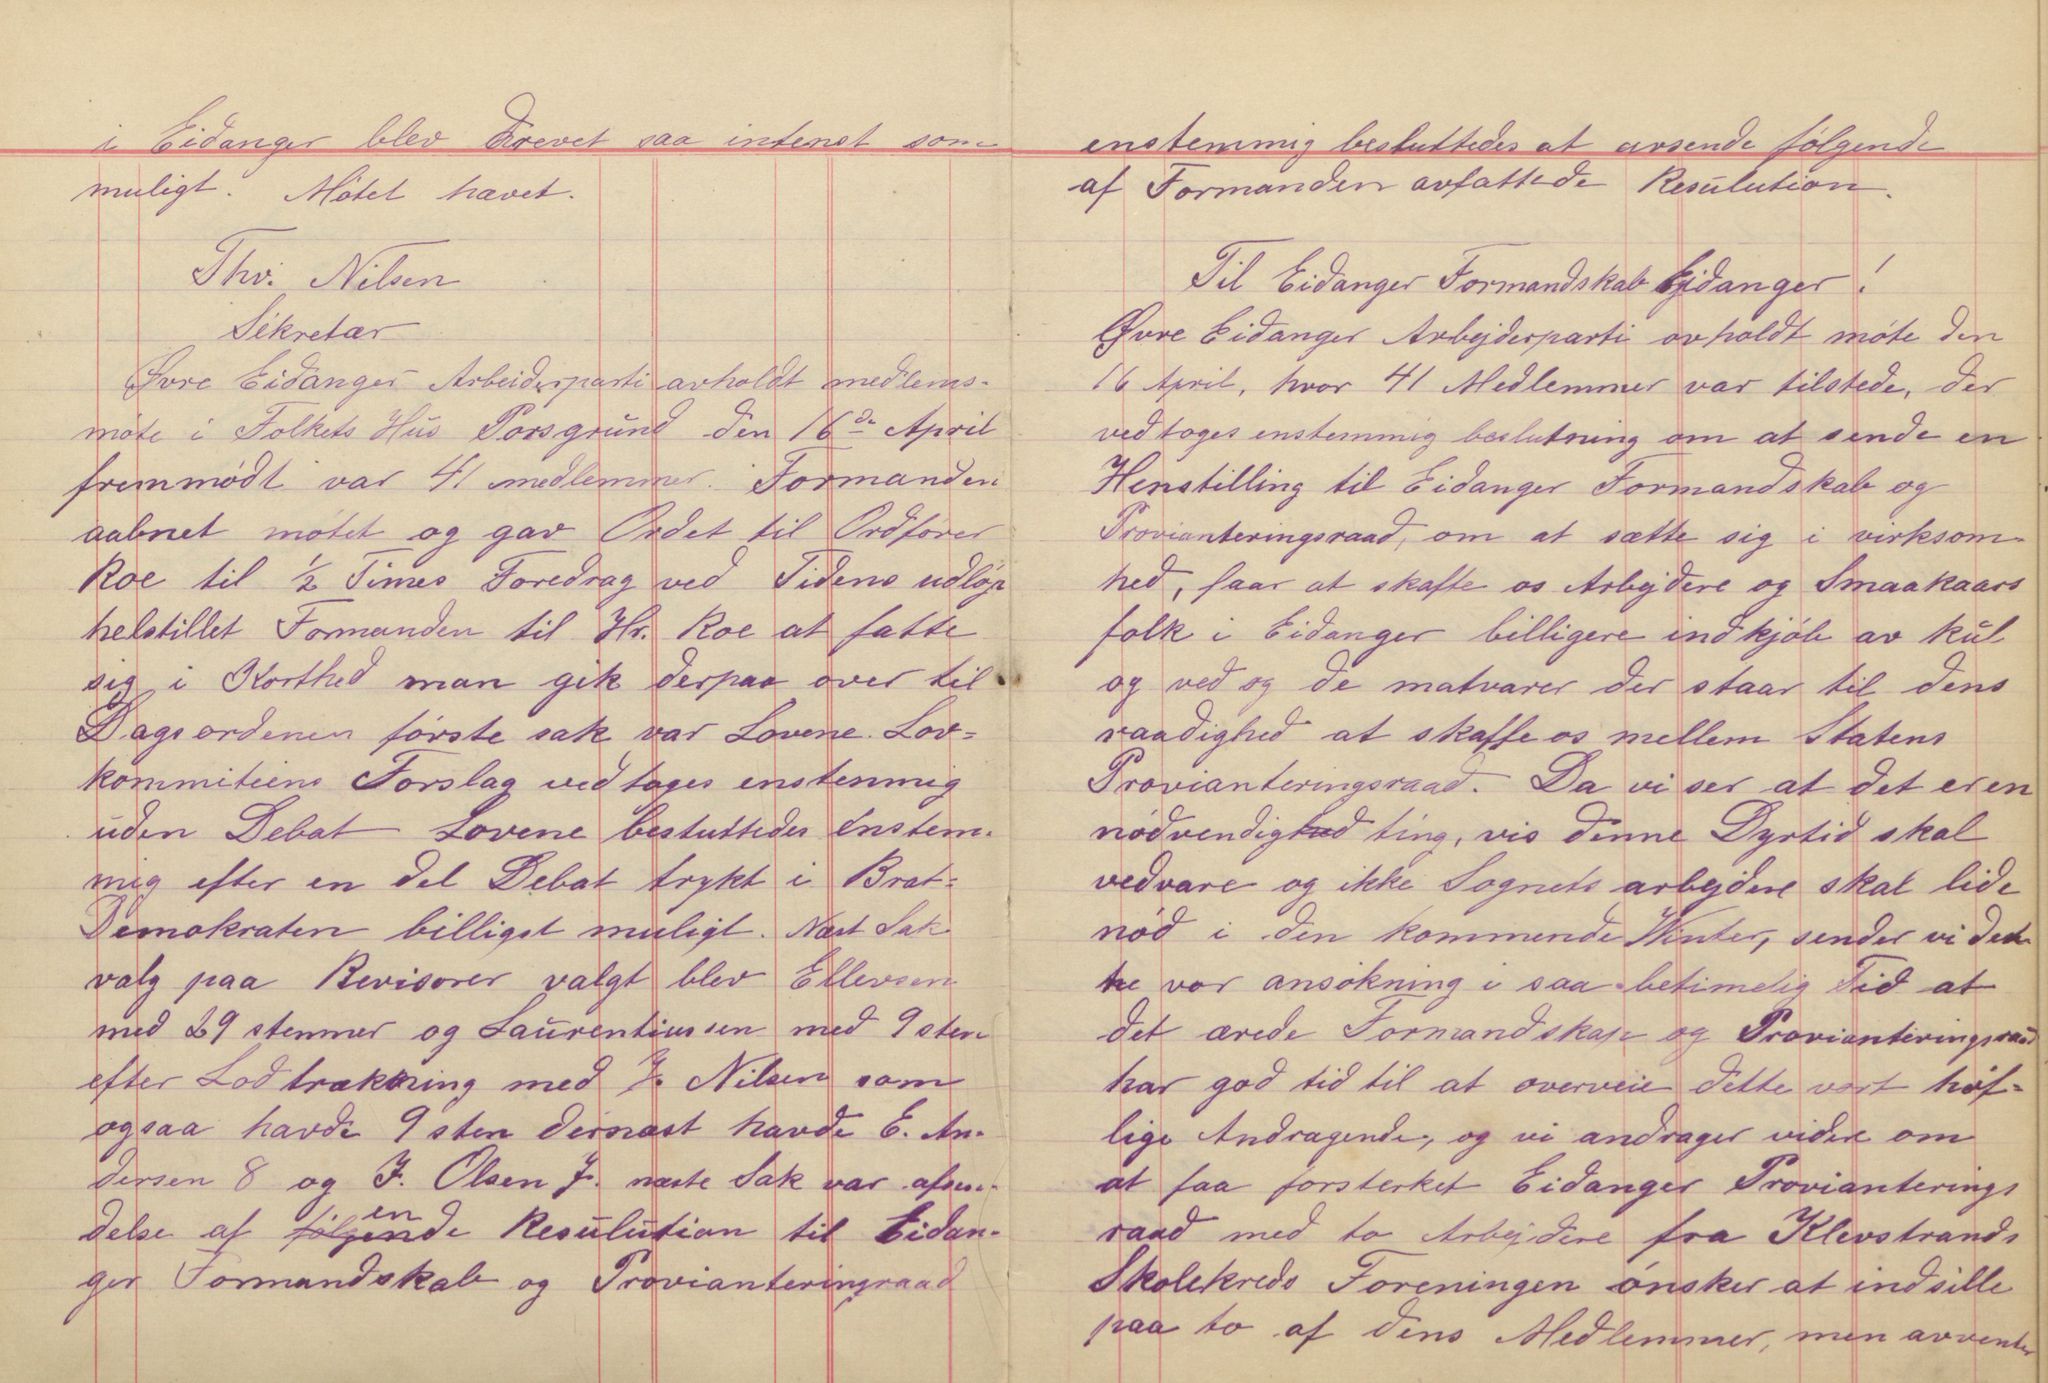 i Eidanger blev Drevet saa intenst som
muligt. Møtet hævet.
Thv. Nilsen
Sekretær
Øvre Eidanger Arbeiderparti avholdt medlems-
møte i Folkets Hus Porsgrund den 16de April
fremmødt var 41 medlemmer. Formanden
aabnet møtet og gav Ordet til Ordfører
Roe til ½ Times Foredrag ved Tidens udløp
helstillet Formanden til Hr. Roe at fatte
sig i Korthed man gik derpaa over til
Dagsordenen første sak var Lovene. Lov-
kommiteens Forslag vedtoges enstemmig
uden Debat Lovene besluttedes Enstem-
mig efter en del Debat trykt i Brat-
Demokraten billigst muligt. Næst Sak
valg paa Revisorer valgt blev Ellevsen
med 29 stemmer og Laurentiussen med 9 stem
efter Lodtrækning med J. Nilsen som
ogsaa havde 9 stem dernæst havde E. An-
dersen 8 og J. Olsen 7. næste Sak var afsen-
delse af en Resulution til Eidan-
ger Formandskab og Provianteringsraad
enstemmig besluttedes at avsende følgende
af Formanden avfattede Resulution.
Til Eidanger Formandskab Eidanger!
Øvre Eidanger Arbejderparti avholdt møte den
16 April, hvor 41 Medlemmer var tilstede, der
vedtoges enstemmig beslutning om at sende en
Henstilling til Eidanger Formandskab og
Provianteringsraad, om at sætte sig i virksom-
hed, faar at skaffe os Arbejdere og Smaakaars
folk i Eidanger billigere indkjøb av kul
og ved og de matvarer der staar til dens
raadighed at skaffe os mellem Statens
Provianteringsraad. Da vi ser at det er en
nødvendighed ting, vis denne Dyrtid skal
vedvare og ikke Sognets arbejdere skal lide
nød i den kommende Winter, sender vi det-
te vor ansøkning i saa betimelig Tid at
det ærede Formandskap og Provianteringsraad
har god tid til at overveie dette vort høf-
lige Andragende, og vi andrager videre om
at faa forsterket Eidanger Provianterings
raad med to Arbejdere fra Klevstrands
Skolekreds Foreningen ønsker at indsille
paa to af dens Medlemmer, men avventer